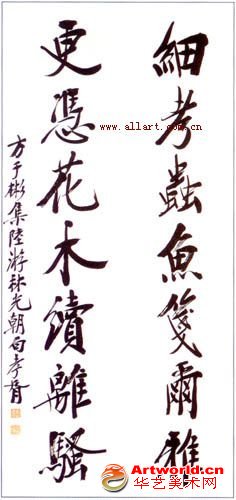 細考蟲魚箋爾雅
更憑花木續離騷
方于彬集陸游林光朝句孝胥
www.allart.cn.com
Artworld.cn
华艺美术网